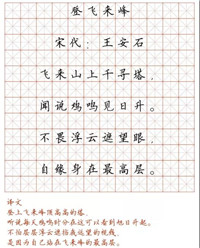 登飞来峰
宋代：王安石
飞来山上千寻塔，
闻说鸡鸣见日升。
不畏浮云遮望眼，
自缘身在最高层。
译文
登上飞来峰顶最高的塔，
听说每天鸡鸣时分在这可以看到旭日升起。
不怕层层浮云遮挡我远望的视线，
是因为自己站在飞来峰的最高层。